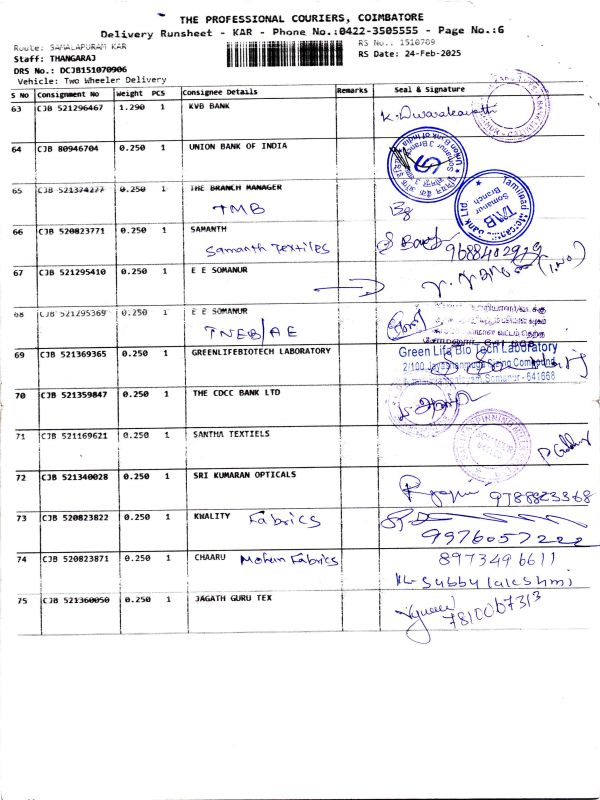 THE PROFESSIONAL COURIERS, COIMBATORE
Delivery Runsheet - KAR - Phone No.:0422-3505555 - Page No.:6
Route: SAMALAPURAM KAR
RS No.: 1510709
Staff: THANGARAJ
RS Date: 24-Feb-2025
DRS No.: DCJB151070906
Vehicle: Two Wheeler Delivery
S No Consignment No Weight PCS Consignee Details Remarks Seal & Signature
63 CJB 521296467 1.290 1 KVB BANK
K. Dwarakavathi
64 CJB 80946704 0.250 1 UNION BANK OF INDIA
Union Bank of India
Somanur Branch
65 CJB 521374277 0.250 1 THE BRANCH MANAGER
TMB
Tamilnad Mercantile Bank Ltd
TMB
Somanur
Branch
66 CJB 520823771 0.250 1 SAMANTH
Samanth Textiles
9688402979
67 CJB 521295410 0.250 1 E E SOMANUR
68 CJB 521295369 0.250 1 E E SOMANUR
TNEB/AE
69 CJB 521369365 0.250 1 GREENLIFEBIOTECH LABORATORY
Green Life Bio Tech Laboratory
Somanur - 641668
70 CJB 521359847 0.250 1 THE CDCC BANK LTD
71 CJB 521169621 0.250 1 SANTHA TEXTIELS
72 CJB 521340028 0.250 1 SRI KUMARAN OPTICALS
9788823368
73 CJB 520823822 0.250 1 KHALITY Fabrics
9976057222
74 CJB 520823871 0.250 1 CHAARU Mohan Fabrics
8973496611
Subbulakshmi
75 CJB 521360050 0.250 1 JAGATH GURU TEX
7810067313